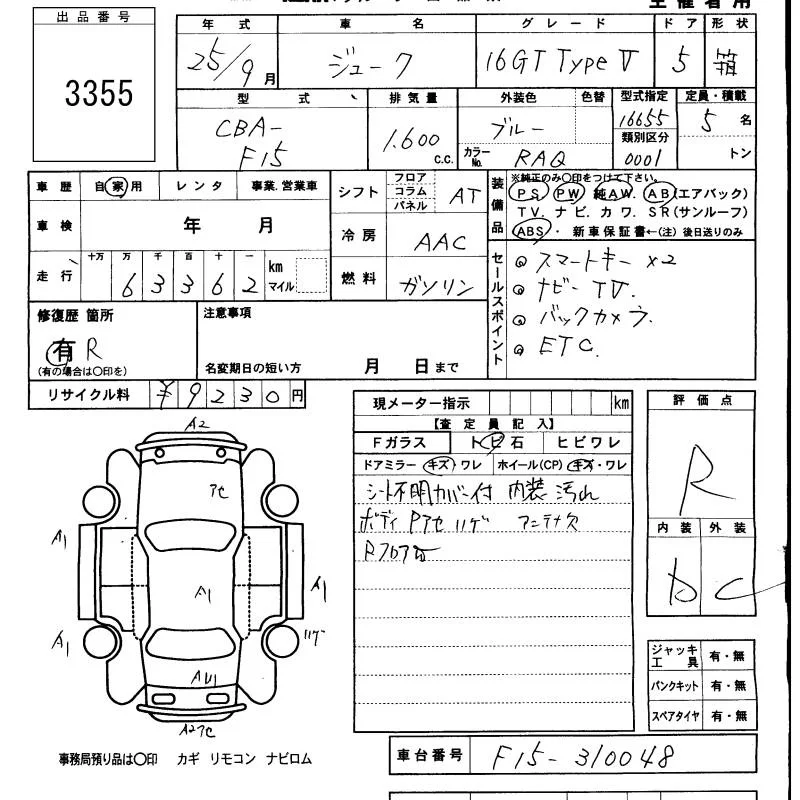 主催者用
出品番号
3355
年式 車名 グレード ドア 形状
25/9月 ジューク 16GT Type V 5 箱
型式 排気量 外装色 色替 型式指定 定員・積載
CBA-F15 1.600 c.c. ブルー 16655 5 名
カラーNo. RAQ 類別区分 0001 トン
車歴 自家用 レンタ 事業.営業車
車検 年 月
走行 十万 万 千 百 十 一 km マイル
63362
シフト フロア コラム パネル AT
冷房 AAC
燃料 ガソリン
装備品 ※純正のみ〇印をつけて下さい。
PS. PW. 純AW. AB(エアバック)
TV. ナビ. カワ. SR(サンルーフ)
ABS・ 新車保証書←(注)後日送りのみ
セールスポイント
スマートキー x2
ナビー TV.
バックカメラ.
ETC.
修復歴 箇所
有 R
(有の場合は〇印を)
注意事項
名変期日の短い方 月 日まで
リサイクル料 ¥9230円
現メーター指示 km
【査定員記入】
Fガラス トビ石 ヒビワレ
ドアミラー キズ・ワレ ホイール(CP) キズ・ワレ
シート不明カバー付 内装 汚れ
ボディ Pアセ ハゲ アンテナ欠
Rフロア
評価点
R
内装 外装
D C
ジャッキ工具 有・無
パンクキット 有・無
スペアタイヤ 有・無
A2
アセ
A1
A1
A1
A1
ハゲ
AU1
A2アセ
事務局預り品は〇印 カギ リモコン ナビロム
車台番号 F15-310048